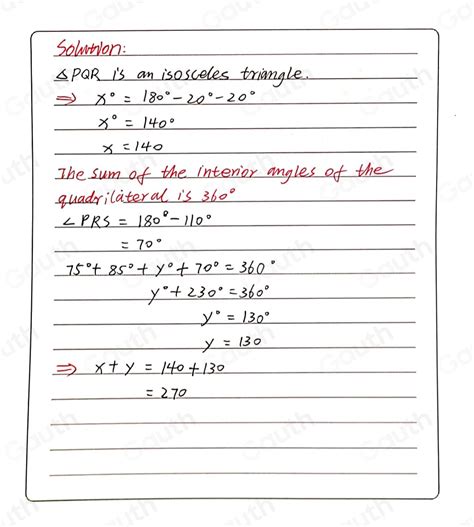 Solution:
△PQR is an isosceles triangle.
⇒ x° = 180° - 20° - 20°
x° = 140°
x = 140
The sum of the interior angles of the
quadrilateral is 360°
∠PRS = 180° - 110°
= 70°
75° + 85° + y° + 70° = 360°
y° + 230° = 360°
y° = 130°
y = 130
⇒ x + y = 140 + 130
= 270